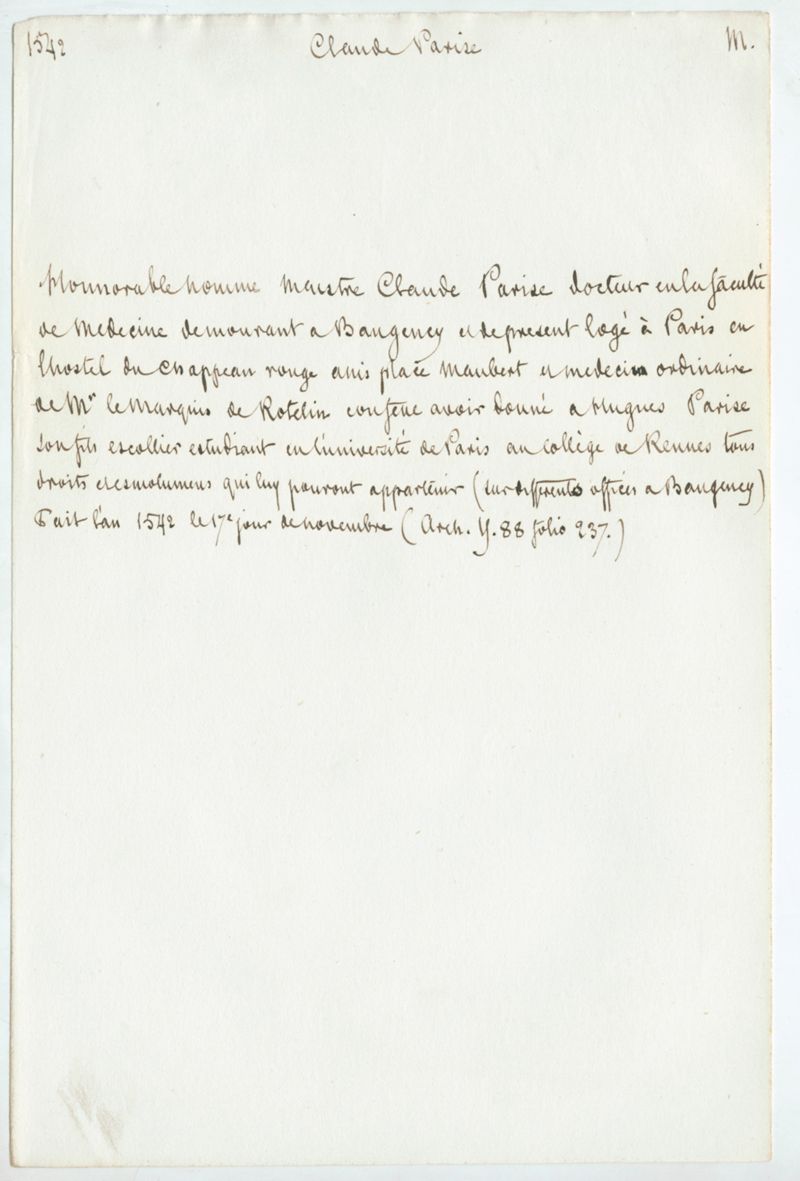 1542 Claude Parise M.
Honnorable homme Maistre Claude Parise docteur en la faculté
de Medecine demourant a Baugency et de present logé à Paris en
lhostel du Chappeau rouge assis place Maubert et medecin ordinaire
de Mr le Marquis de Rotelin confesse avoir donné a Hugues Parise
son fils escollier estudiant en l'université de Paris au Collège de Rennes tous
droits et esmolumens qui luy pouront appartenir (sur differents offices a Baugency)
Fait l'an 1542 le 17e jour de novembre (Arch. Y. 88 folio 237.)